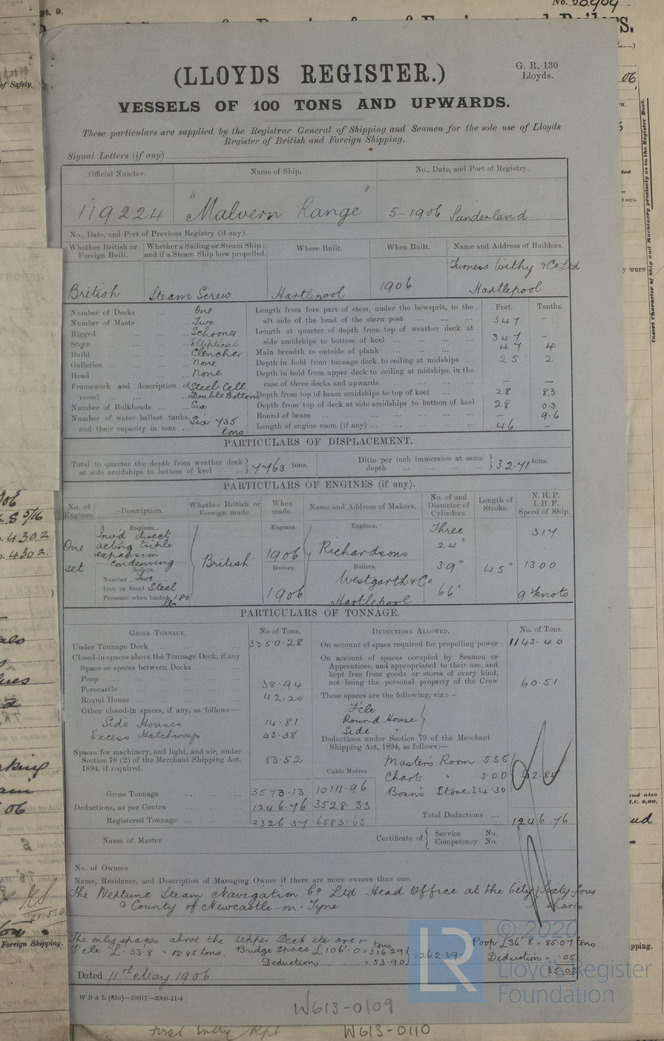 (LLOYDS REGISTER.)
G. R. 130
Lloyds.
VESSELS OF 100 TONS AND UPWARDS.
These particulars are supplied by the Registrar General of Shipping and Seamen for the sole use of Lloyds
Register of British and Foreign Shipping.
Signal Letters (if any)
Official Number. Name of Ship. No., Date, and Port of Registry.
119224 "Malvern Range" 5-1906 Sunderland
No., Date, and Port of Previous Registry (if any).
Whether British or Foreign Built. Whether a Sailing or Steam Ship; and if a Steam Ship how propelled. Where Built. When Built. Name and Address of Builders.
British Steam Screw Hartlepool 1906 Furness Withy & Co Ltd Hartlepool
Number of Decks One
Number of Masts Two
Rigged Schooner
Stern Elliptical
Build Clencher
Galleries None
Head None
Framework and description of vessel Steel Cell. Double Bottom
Number of Bulkheads Six
Number of water ballast tanks, and their capacity in tons Six 735 tons
Feet. Tenths.
Length from fore part of stem, under the bowsprit, to the aft side of the head of the stern post 347
Length at quarter of depth from top of weather deck at side amidships to bottom of keel 347 -
Main breadth to outside of plank 47 4
Depth in hold from tonnage deck to ceiling at midships 25 2
Depth in hold from upper deck to ceiling at midships, in the case of three decks and upwards — —
Depth from top of beam amidships to top of keel 28 83
Depth from top of deck at side amidships to bottom of keel 28 03
Round of beam 9.6
Length of engine room (if any) 46 -
PARTICULARS OF DISPLACEMENT.
Total to quarter the depth from weather deck at side amidships to bottom of keel 7763 tons.
Ditto per inch immersion at same depth 32.71 tons.
PARTICULARS OF ENGINES (if any).
No. of Engines. Description. Whether British or Foreign made. When made. Name and Address of Makers. No. of and Diameter of Cylinders. Length of Stroke. N.H.P. I.H.P. Speed of Ship.
One set
Engines.
Inv'd direct
acting triple
expansion
condensing
Boilers.
Number Two
Iron or Steel Steel
Pressure when loaded 180 lbs
British
Engines. 1906
Boilers. 1906
Engines. Richardsons
Boilers. Westgarth & Co
Hartlepool
Three
24"
39"
66"
45"
317
1300
9 knots
PARTICULARS OF TONNAGE.
GROSS TONNAGE. No of Tons.
Under Tonnage Deck 3350.28
Closed-in spaces above the Tonnage Deck, if any
Space or spaces between Decks
Poop
Forecastle 38.94
Round House 42.20
Other closed-in spaces, if any, as follows—
Side Houses 14.81
Excess Hatchways 43.38
Spaces for machinery, and light, and air, under Section 78 (2) of the Merchant Shipping Act, 1894, if required. 83.52
Cubic Metres
Gross Tonnage 3573.13 10111.96
Deductions, as per Contra 1246.76 3528.33
Registered Tonnage 2326.37 6583.63
DEDUCTIONS ALLOWED. No. of Tons.
On account of space required for propelling power 1143.40
On account of spaces occupied by Seamen or Apprentices, and appropriated to their use, and kept free from goods or stores of every kind, not being the personal property of the Crew 60.51
These spaces are the following, viz.:—
F'cle
Round House
Side "
Deductions under Section 79 of the Merchant Shipping Act, 1894, as follows—
Master's Room 5.55
Chart " 3.00
Bosn's Store 34.30
42.85
Total Deductions 1246.76
Name of Master
Certificate of Service No.
Competency No.
No. of Owners
Name, Residence, and Description of Managing Owner if there are more owners than one.
The Neptune Steam Navigation Co Ltd Head Office at the City Sixty four
& County of Newcastle-on-Tyne shares
The only spaces above the Upper Deck etc are
F'cle
Bridge Space
Deductions = 53.90
= 262.39
Poop
Deduction
Dated 11th May 1906
W613-0109
First Entry Rpt W613-0110
© 2020
LR
Lloyd's Register
Foundation